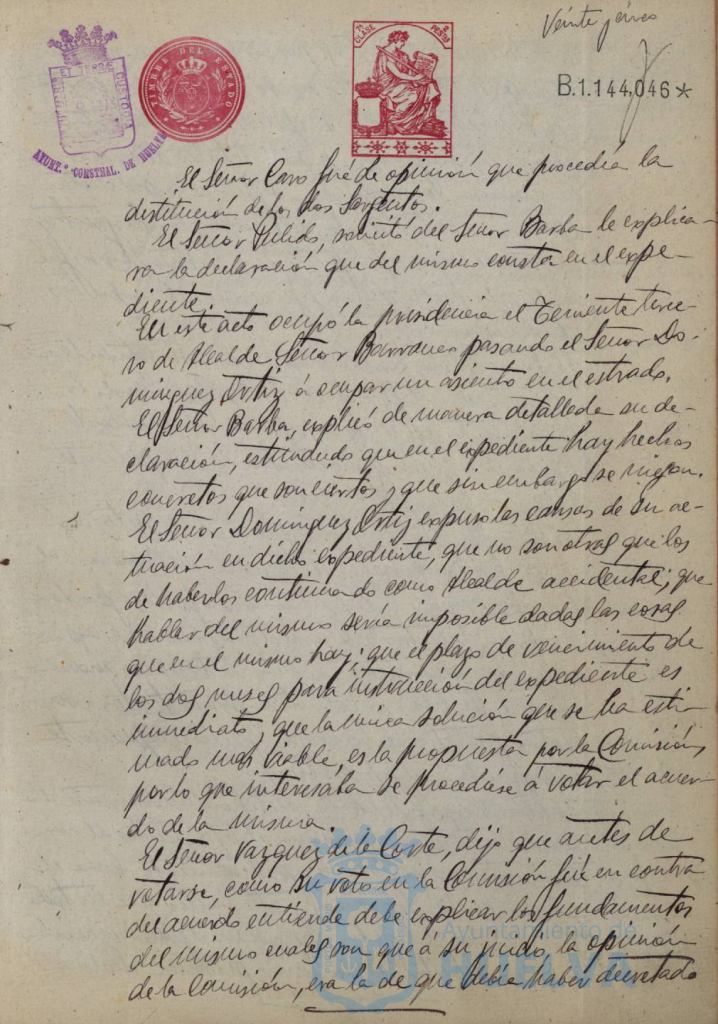 Veinte
B.1.144,046*
7ª CLASE 2 PESTAS
TIMBRE DEL ESTADO
AYUNT.º CONSTNAL. DE HUELVA
El Señor Caro fué de opinión que procedía la
distitución de los dos Sargentos.
El Señor Pulido, solicitó del Señor Barba le explica-
ra la declaración que del mismo consta en el expe-
diente.
En este acto ocupó la presidencia el Teniente terce-
ro de Alcalde Señor Barranco pasando el Señor Do-
minguez Ortiz á ocupar un asiento en el estrado.
El Señor Barba, explicó de manera detallada su de-
claración, estimando que en el expediente hay hechos
concretos que son ciertos y que sin embargo se niegan.
El Señor Dominguez Ortiz expuso las causas de su ac-
tuación en dicho expediente, que no son otras que los
de haberlos continuado como Alcalde accidental; que
hablar del mismo sería imposible dadas las cosas
que en el mismo hay; que el plazo de vencimiento de
los dos meses para instrucción del expediente es
inmediato, que la única solución que se ha esti-
mado mas viable, es la propuesta por la Comisión,
por lo que interesaba se procediese á votar el acuer-
do de la misma.
El Señor Vazquez de la Corte, dijo que antes de
votarse, como su voto en la Comisión fué en contra
del acuerdo entiende debe explicar los fundamentos
del mismo cuales son que a su juicio, la opinión
de la Comisión, era la de que debía haber decretado
Ayuntamiento de
HUELVA